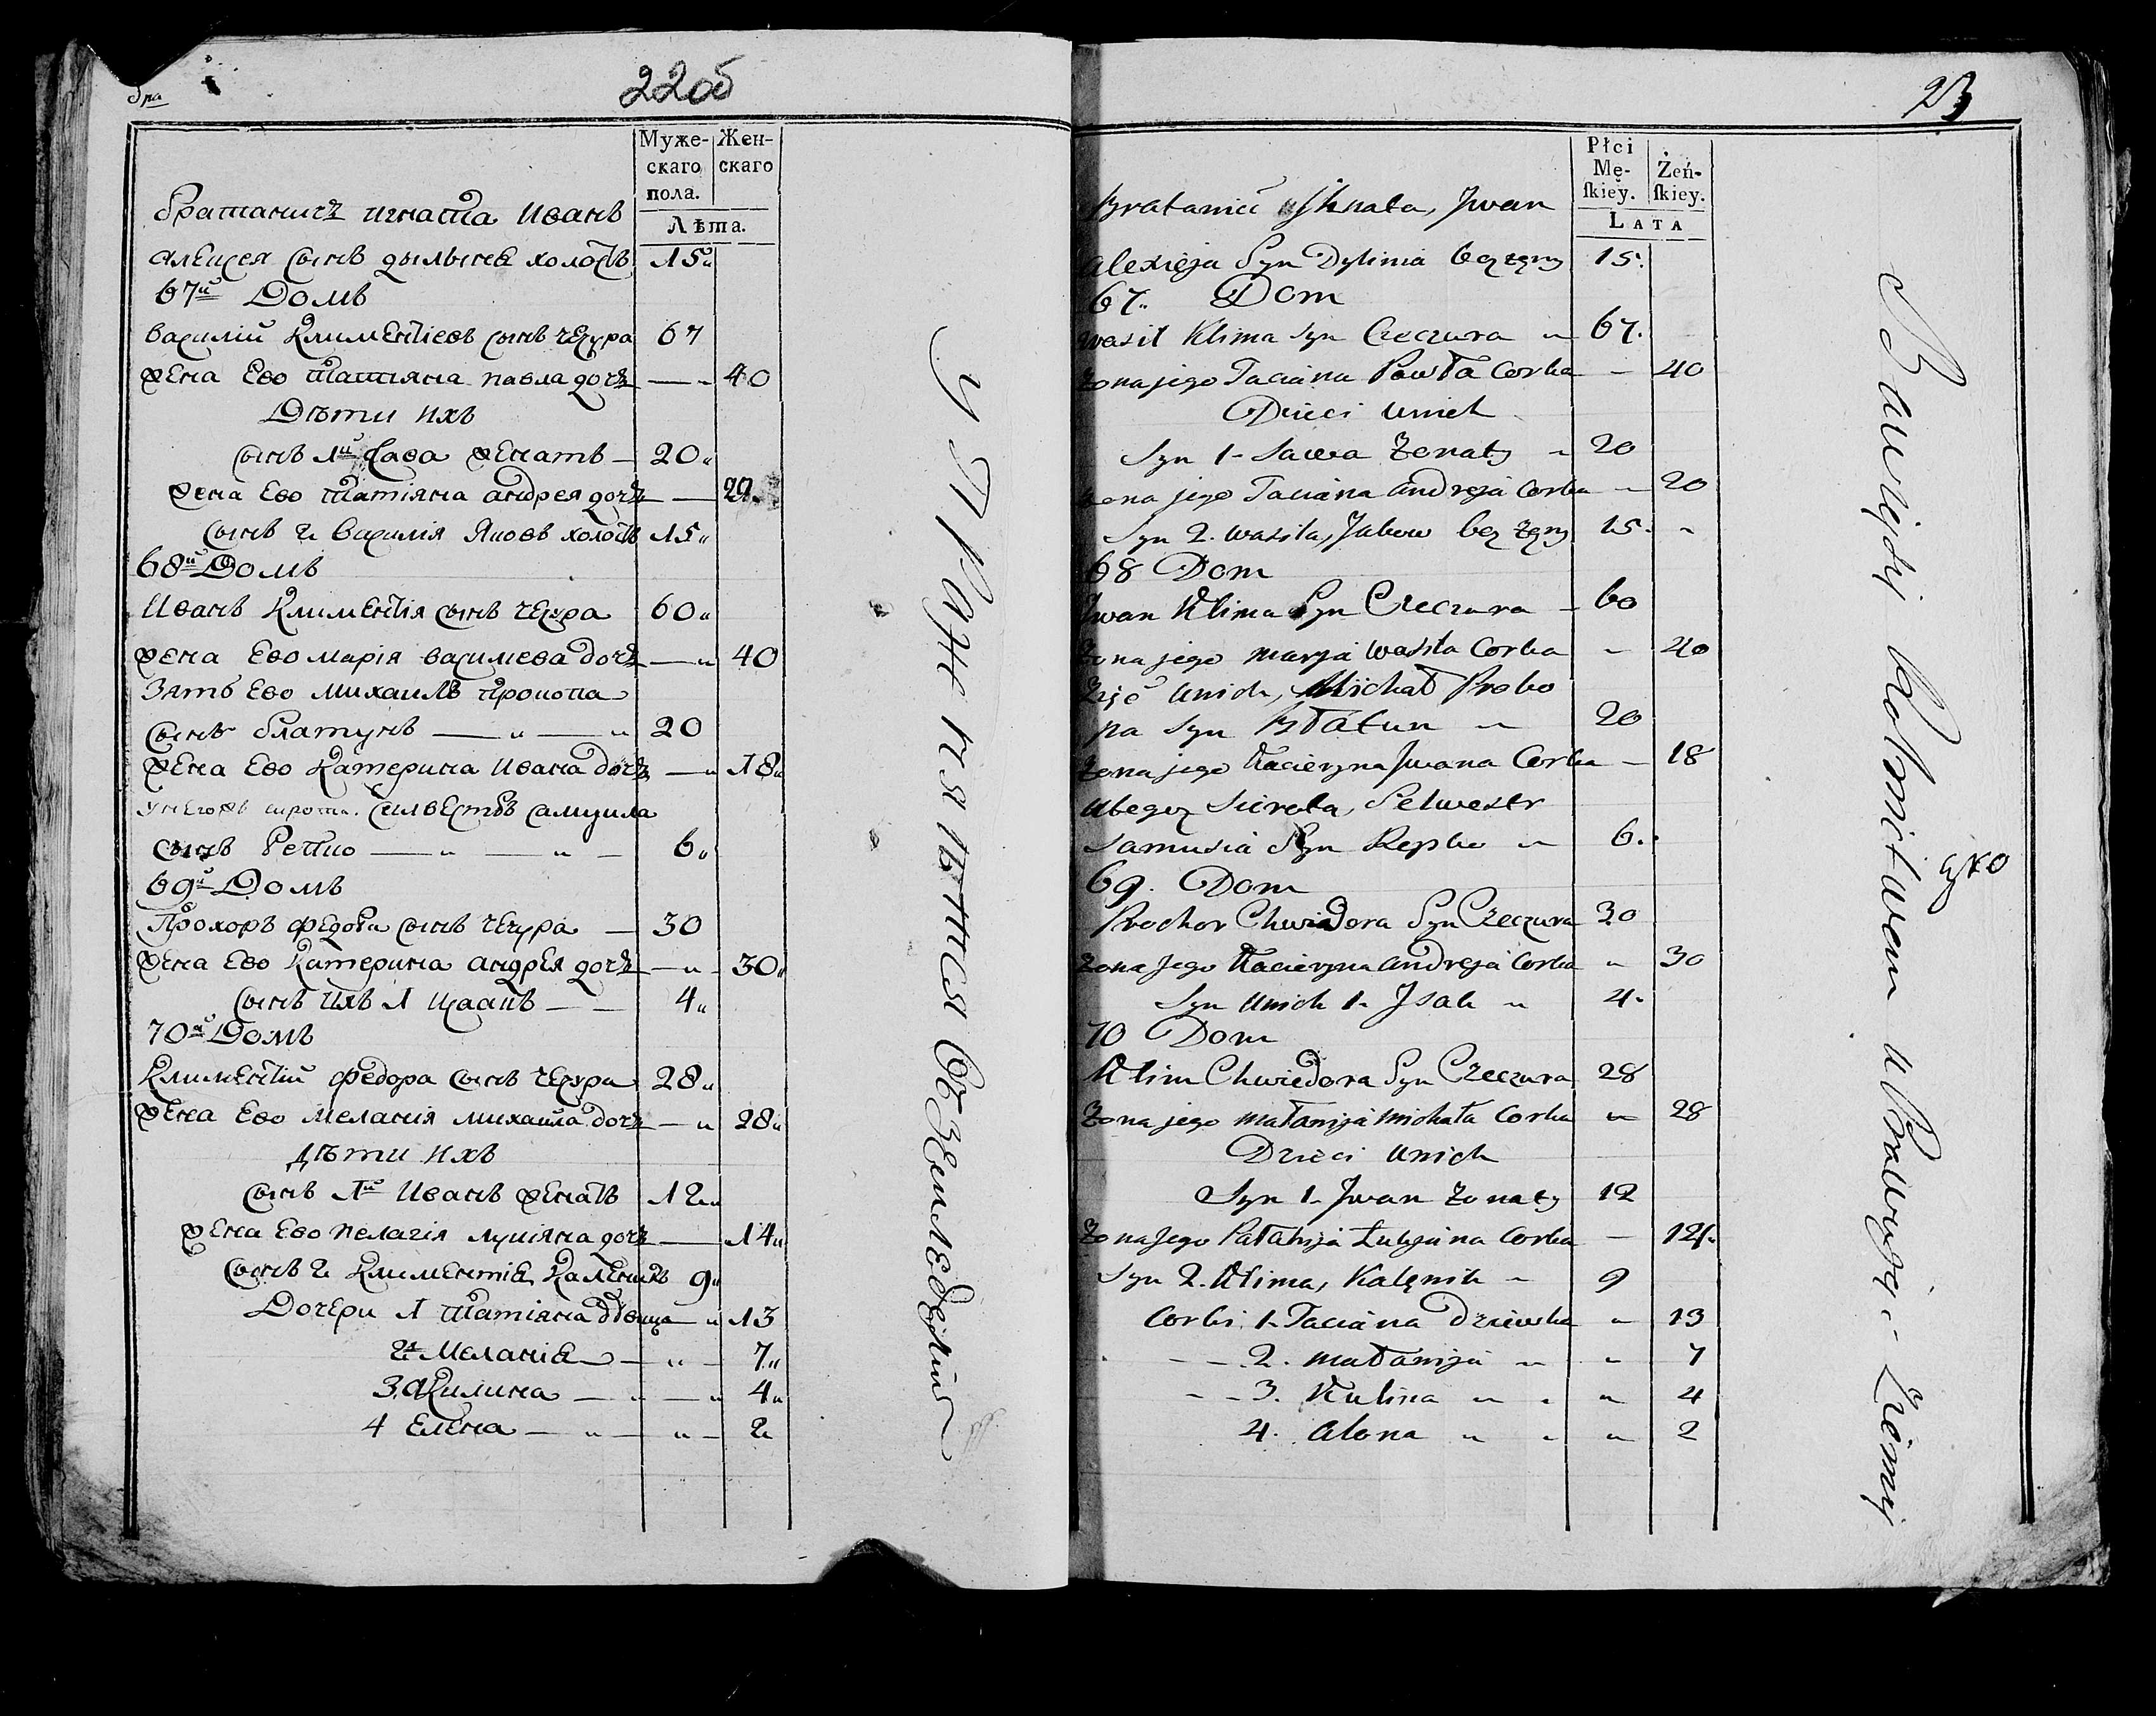 22об
Муже-
скаго
пола.
Жен-
скаго
Лѣта.
братаничъ игната Иванъ
алексея сынъ дылынеа холостъ 15
67й Домъ
василій Климентіевъ сынъ чечура 67
жена Ево татіяна павла дочь — 40
Дѣти ихъ
сынъ 1й Сава женатъ — 20
жена Ево татіяна андрея дочь — 20
сынъ 2 василія Яковъ холостъ 15
68й Домъ
Иванъ Климентія сынъ чечура 60
жена Ево марія василиева дочь — 40
Зять Ево михаилъ прокопа
сынъ блатунъ — 20
жена Ево Катерина Ивана дочь — 18
унегожъ сирота. силвестръ самуила
сынъ Репко — 6
69й Домъ
Прохоръ федора сынъ чечура — 30
жена Ево Катерина андрея дочь — 30
сынъ ихъ 1 исаакъ — 4
70й Домъ
Климентій федора сынъ чечура 28
жена Ево меланія михаила дочь — 28
дѣти ихъ
сынъ 1й Иванъ женатъ 12
жена Ево пелагія лукіяна дочь — 14
сынъ 2 Климентія, Каленикъ 9
Дочери 1 татіана девица 13
2я Меланія — 7
3. Акилина — 4
4 Елена — 2
Упражняется въ земледелии
23
Płci
Mę-
skiey.
Żeń-
skiey.
LATA
Bratanic Ihnata, Jwan
Alexieja Syn Dylinia bez żęny 15.
67. Dom
wasil Klima syn Czeczura 67.
Żona jego Taciana Pawła Corka — 40
Dzieci Unich
Syn 1 - Sawa Żonaty 20
Żona jego Taciana andreja Corka — 20
Syn 2. wasila, Jakow bez żęny 15.
68 Dom
Jwan Klima Syn Czeczura — 60
Żona jego marya wasila Corka 40
Zięć Unich, Michał Proko
pa Syn Błatun 20
Żona jego Kacieryna Jwana Corka — 18
Utegoz Sierota, Selwestr
Samusia Syn Repko 6.
69. Dom
Prochor Chwiedora Syn Czeczura 30
Żona jego Kacieryna andreja Corka 30
Syn Unich 1. Jsak 4.
70 Dom
Klim Chwiedora Syn Czeczura 28
Żona jego małanija michała Corka 28
Dzieci Unich
Syn 1. Jwan Żonaty 12
Żona jego Pałahija Łukjana Corka — 14.
Syn 2. Klima, Kalęnik 9
Corki 1. Taciana Dziewka 13
2. małanija 7
3. Kulina 4
4. Alona 2
Bawiący